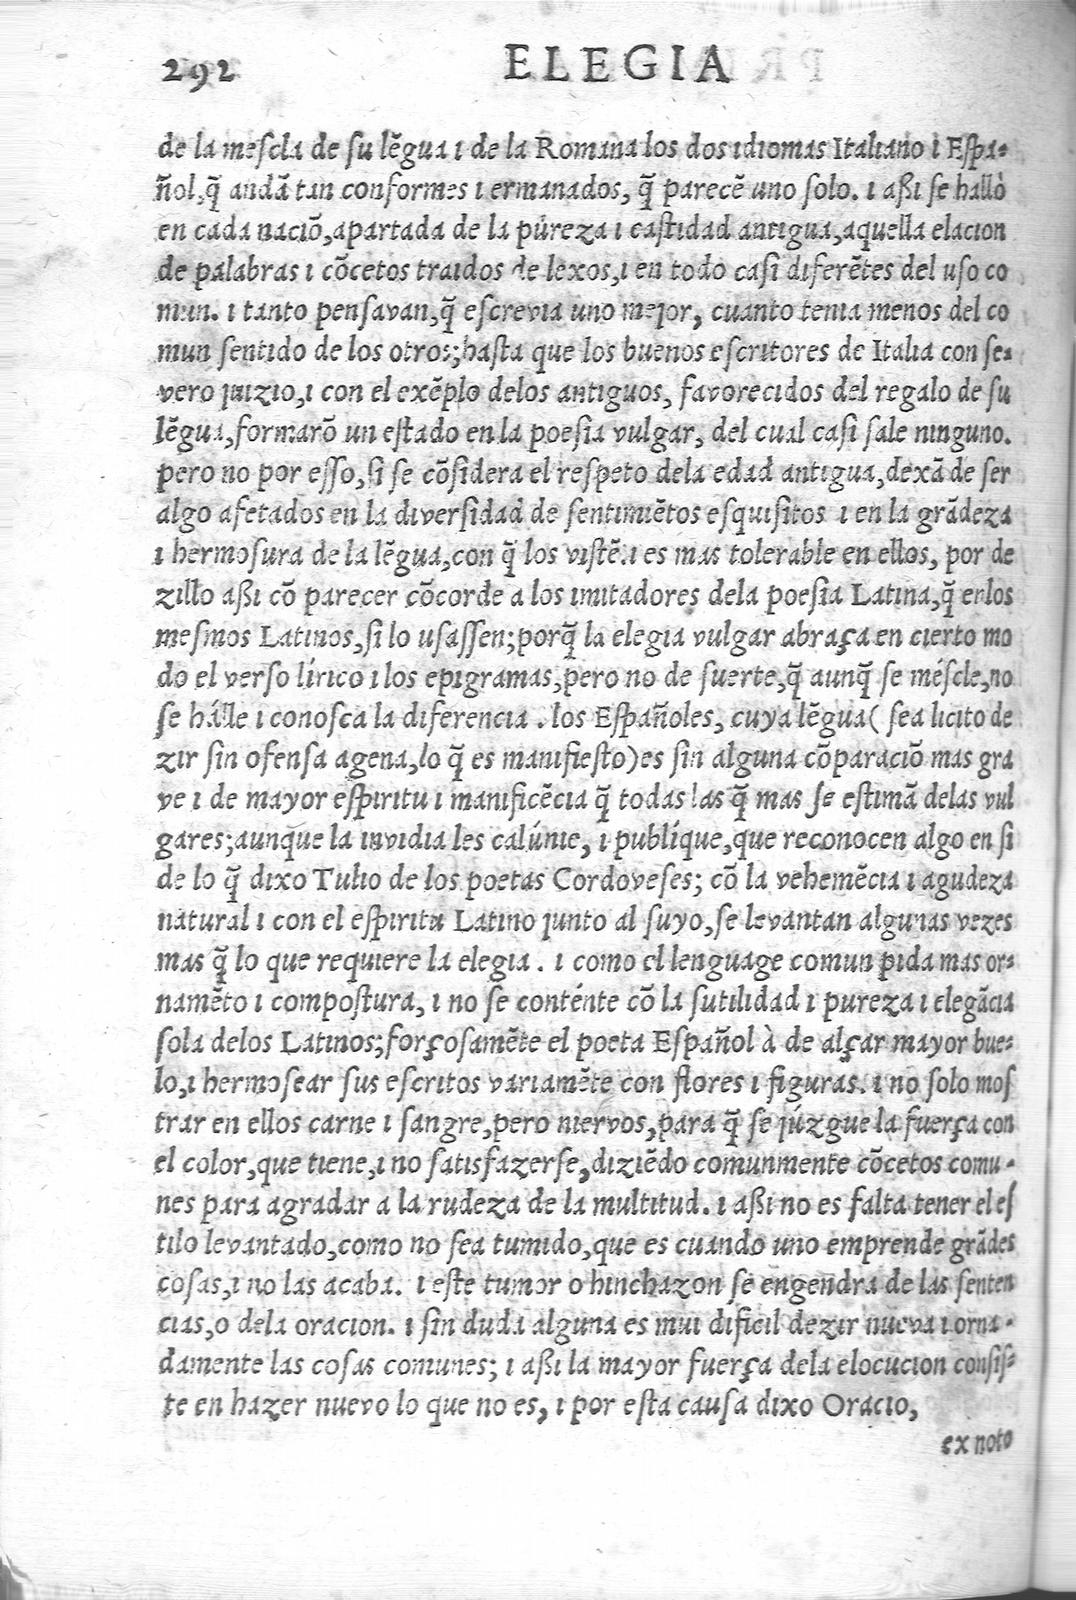 292 ELEGIA
de la mescla de su lẽgua i de la Romana los dos idiomas Italiano i Espa-
ñol, q̃ andã tan conformes i ermanados, q̃ parecẽ uno solo. i aßi se hallò
en cada naciõ, apartada de la púreza i castidad antigua, aquella elacion
de palabras i cõcetos traidos de lexos, i en todo casi diferẽtes del uso co
mun. i tanto pensavan, q̃ escrevia uno mejor, cuanto tenia menos del co
mun sentido de los otros; hasta que los buenos escritores de Italia con se-
vero juizio, i con el exẽplo delos antiguos, favorecidos del regalo de su
lẽgua, formarõ un estado en la poesia vulgar, del cual casi sale ninguno.
pero no por esso, si se cõsidera el respeto dela edad antigua, dexã de ser
algo afetados en la diversidad de sentimiẽtos esquisitos i en la grãdeza
i hermosura de la lẽgua, con q̃ los vistẽ. i es mas tolerable en ellos, por de
zillo aßi cõ parecer cõcorde a los imitadores dela poesia Latina, q̃ enlos
mesmos Latinos, si lo usassen; porq̃ la elegia vulgar abraça en cierto mo
do el verso lírico i los epigramas, pero no de suerte, q̃ aunq̃ se méscle, no
se hálle i conosca la diferencia. los Españoles, cuya lẽgua (sea licito de
zir sin ofensa agena, lo q̃ es manifiesto) es sin alguna cõparaciõ mas gra
ve i de mayor espiritu i manificẽcia q̃ todas las q̃ mas se estimã delas vul
gares; aunque la invidia les calúnie, i publíque, que reconocen algo en si
de lo q̃ dixo Tulio de los poetas Cordoveses; cõ la vehemẽcia i agudeza
natural i con el espiritu Latino junto al suyo, se levantan algunas vezes
mas q̃ lo que requiere la elegia. i como el lenguage comun pida mas or-
namẽto i compostura, i no se conténte cõ la sutilidad i pureza i elegãcia
sola delos Latinos; forçosamẽte el poeta Español à de alçar mayor bue-
lo, i hermosear sus escritos variamẽte con flores i figuras. i no solo mos
trar en ellos carne i sangre, pero niervos, para q̃ se júzgue la fuerça con
el color, que tiene, i no satisfazerse, diziẽdo comunmente cõcetos comu-
nes para agradar a la rudeza de la multitud. i aßi no es falta tener el es
tilo levantado, como no sea tumido, que es cuando uno emprende grãdes
cosas, i no las acaba. i este tumor o hinchazon se engendra de las senten
cias, o dela oracion. i sin duda alguna es mui dificil dezir nueva i orna-
damente las cosas comunes; i aßi la mayor fuerça dela elocucion consis-
te en hazer nuevo lo que no es, i por esta causa dixo Oracio,
ex noto